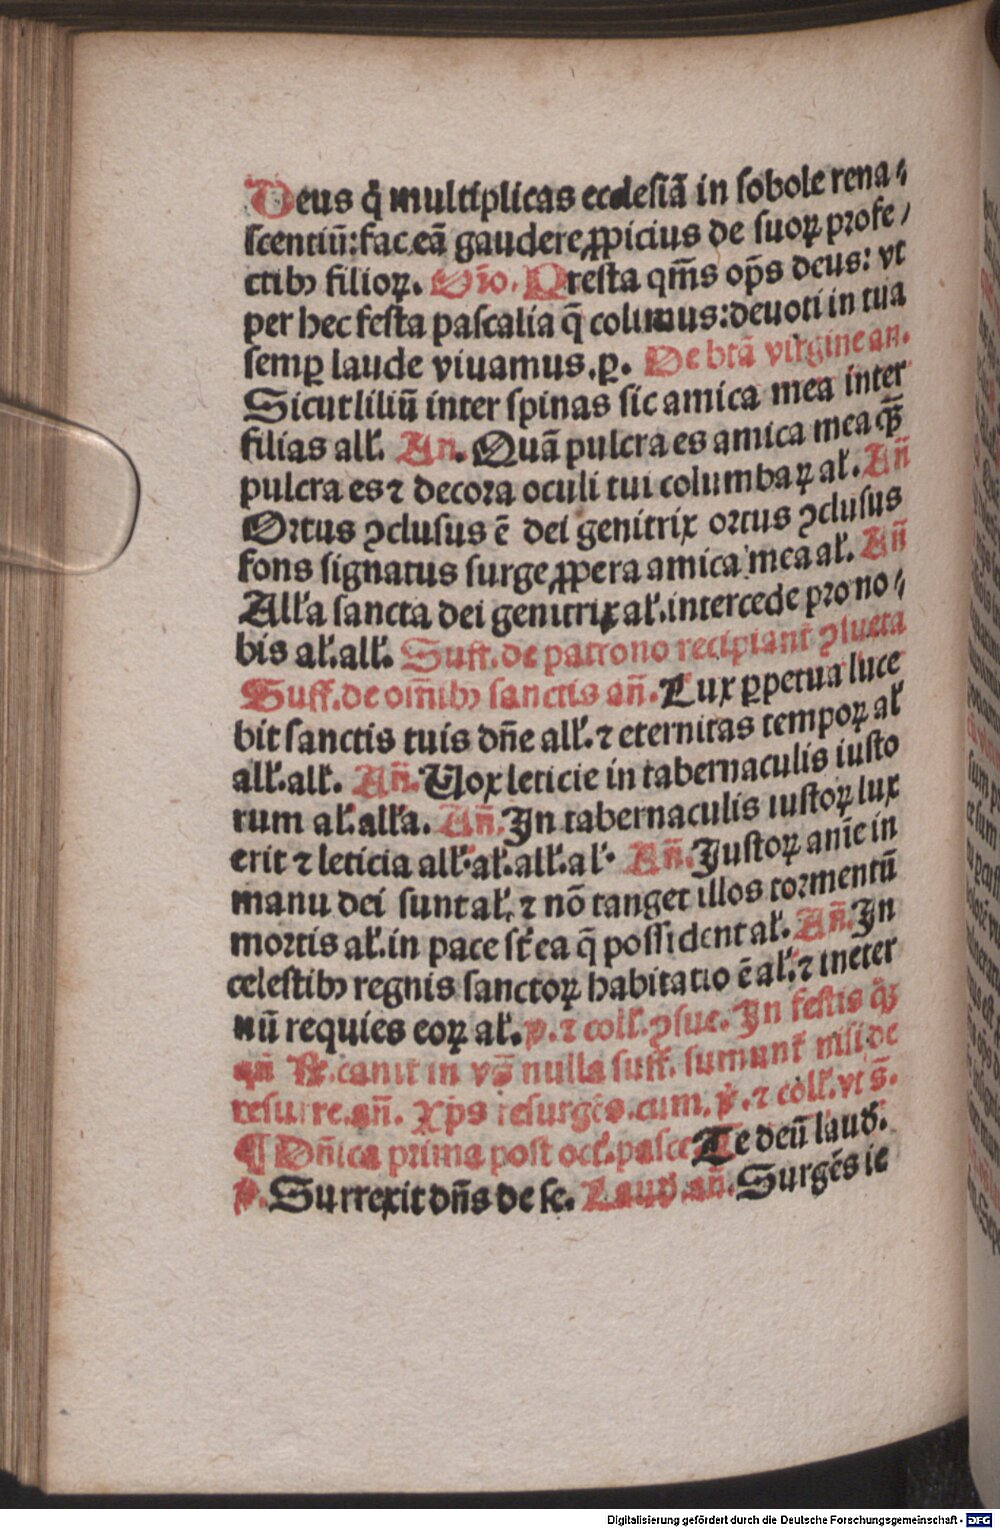 Deus q̇ multiplicas ecclesiā in sobole rena⸗
scentiū: fac eā gaudere ꝓpicius de suoꝝ profe/
ctibꝰ filioꝝ. Ořo. Presta qm̄s op̄s deus: vt
per hec festa pascalia q̄ colimus: deuoti in tua
semꝑ laude viuamus. ꝑ. De btā virgine an.
Sicut liliū inter spinas sic amica mea inter
filias all'. An. Quā pulcra es amica mea ꝙ̄
pulcra es ⁊ decora oculi tui columbaꝝ al'. Añ
Ortus ꝯclusus ē dei genitrix ortus ꝯclusus
fons signatus surge ꝓpera amica mea al'. Añ
All'a sancta dei genitrix al'. intercede pro no⸗
bis al'. all'. Suff. de patrono recipiant̄ ꝯsueta
Suff. de om̄ibꝰ sanctis añ. Lux ꝑpetua luce
bit sanctis tuis dn̄e all'. ⁊ eternitas tempoꝝ al'
all'. all'. Añ. Vox leticie in tabernaculis iusto
rum al'. all'a. Añ. In tabernaculis iustoꝝ lux
erit ⁊ leticia all'. al'. all'. al'. Añ. Iustoꝝ anīe in
manu dei sunt al'. ⁊ nō tanget illos tormentū
mortis al'. in pace st̄ ea q̄ possident al'. Añ. In
celestibꝰ regnis sanctoꝝ habitatio ē al'. ⁊ ineter
nū requies eoꝝ al'. ꝟ. ⁊ coll'. ꝯsue. In festis
añ ℟. canit̄ in nulla suff. sumunt̄ nisi de
resurre. añ. Xp̄s resurgēs. cum. ꝟ. ⁊ coll'. vt s̄.
¶ Dn̄ica prima post oct'. pasce Te deū laud'.
ꝟ. Surrexit dn̄s de se. Laud'. añ. Surgēs ie
Digitalisierung gefördert durch die Deutsche Forschungsgemeinschaft - DFG